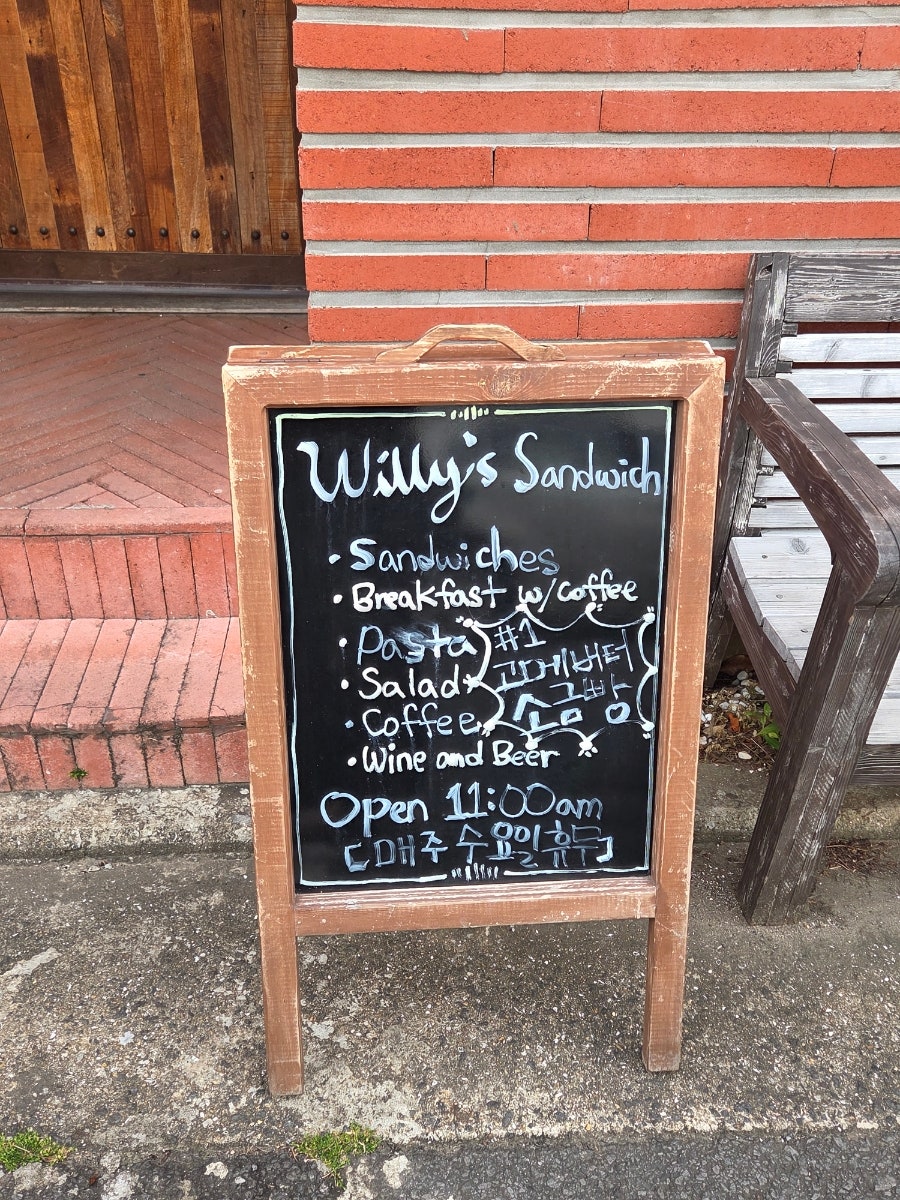 Willy's Sandwich
• Sandwiches
• Breakfast w/ Coffee
• Pasta
• Salad
• Coffee
• Wine and Beer
#1
고메버터
소금빵
Open 11:00am
[매주 수요일 휴무]